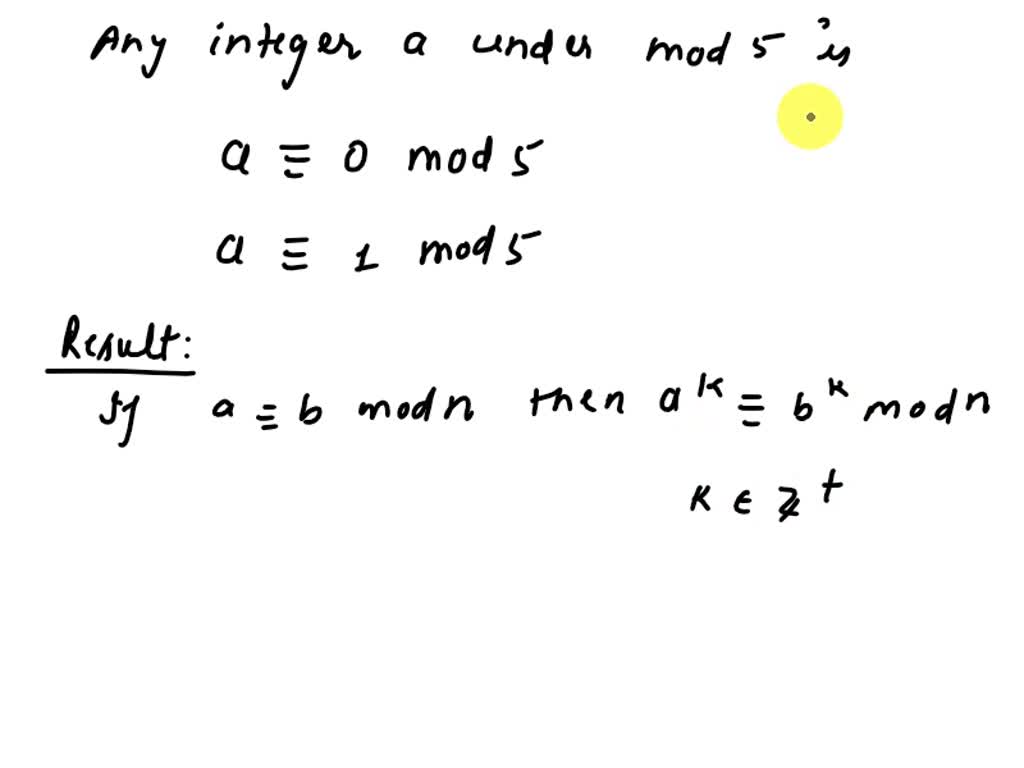 Any integer a under mod 5 is
a ≡ 0 mod 5
a ≡ 1 mod 5
Result:
If a ≡ b mod n then a^k ≡ b^k mod n
k ∈ ℤ^+